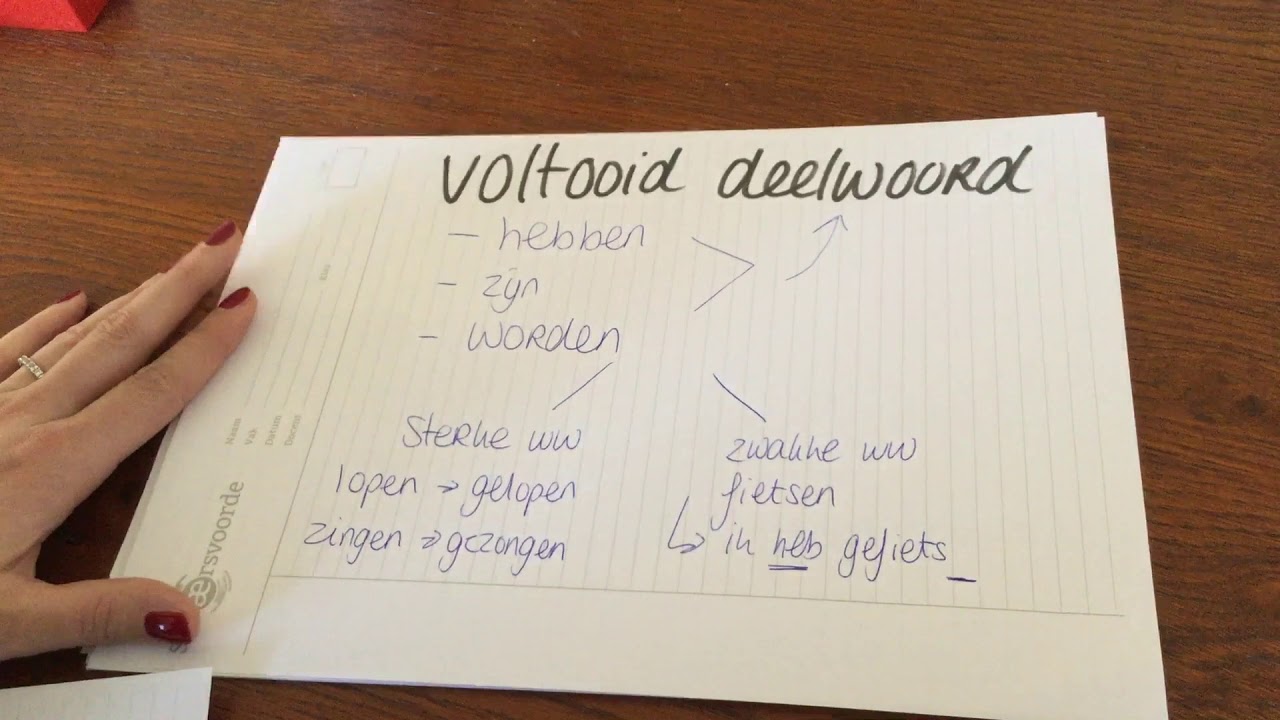 voltooid deelwoord
- hebben
- zijn
- worden
Sterke ww
lopen → gelopen
zingen → gezongen
zwakke ww
fietsen
↳ ik heb gefiets_
Naam
Vak
Datum
Docent
Klas
rsvoorde